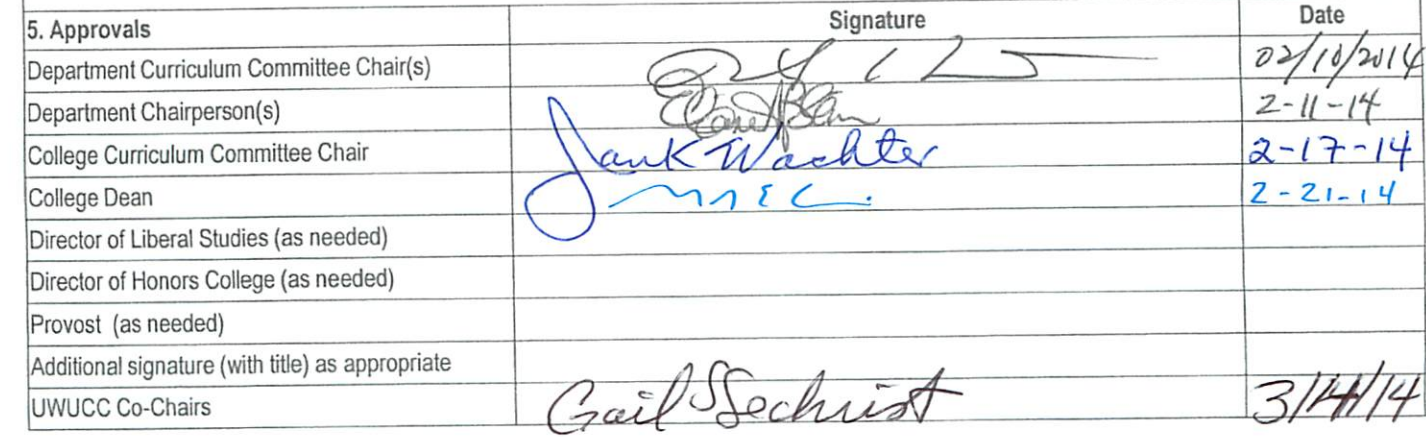 5. Approvals Signature Date
Department Curriculum Committee Chair(s) 02/10/2014
Department Chairperson(s) 2-11-14
College Curriculum Committee Chair Wachter 2-17-14
College Dean 2-21-14
Director of Liberal Studies (as needed)
Director of Honors College (as needed)
Provost (as needed)
Additional signature (with title) as appropriate
UWUCC Co-Chairs Gail S Sechrist